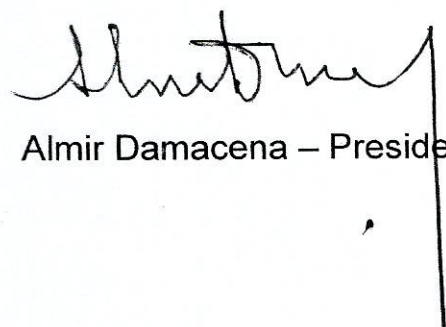 Almir Damacena – Preside